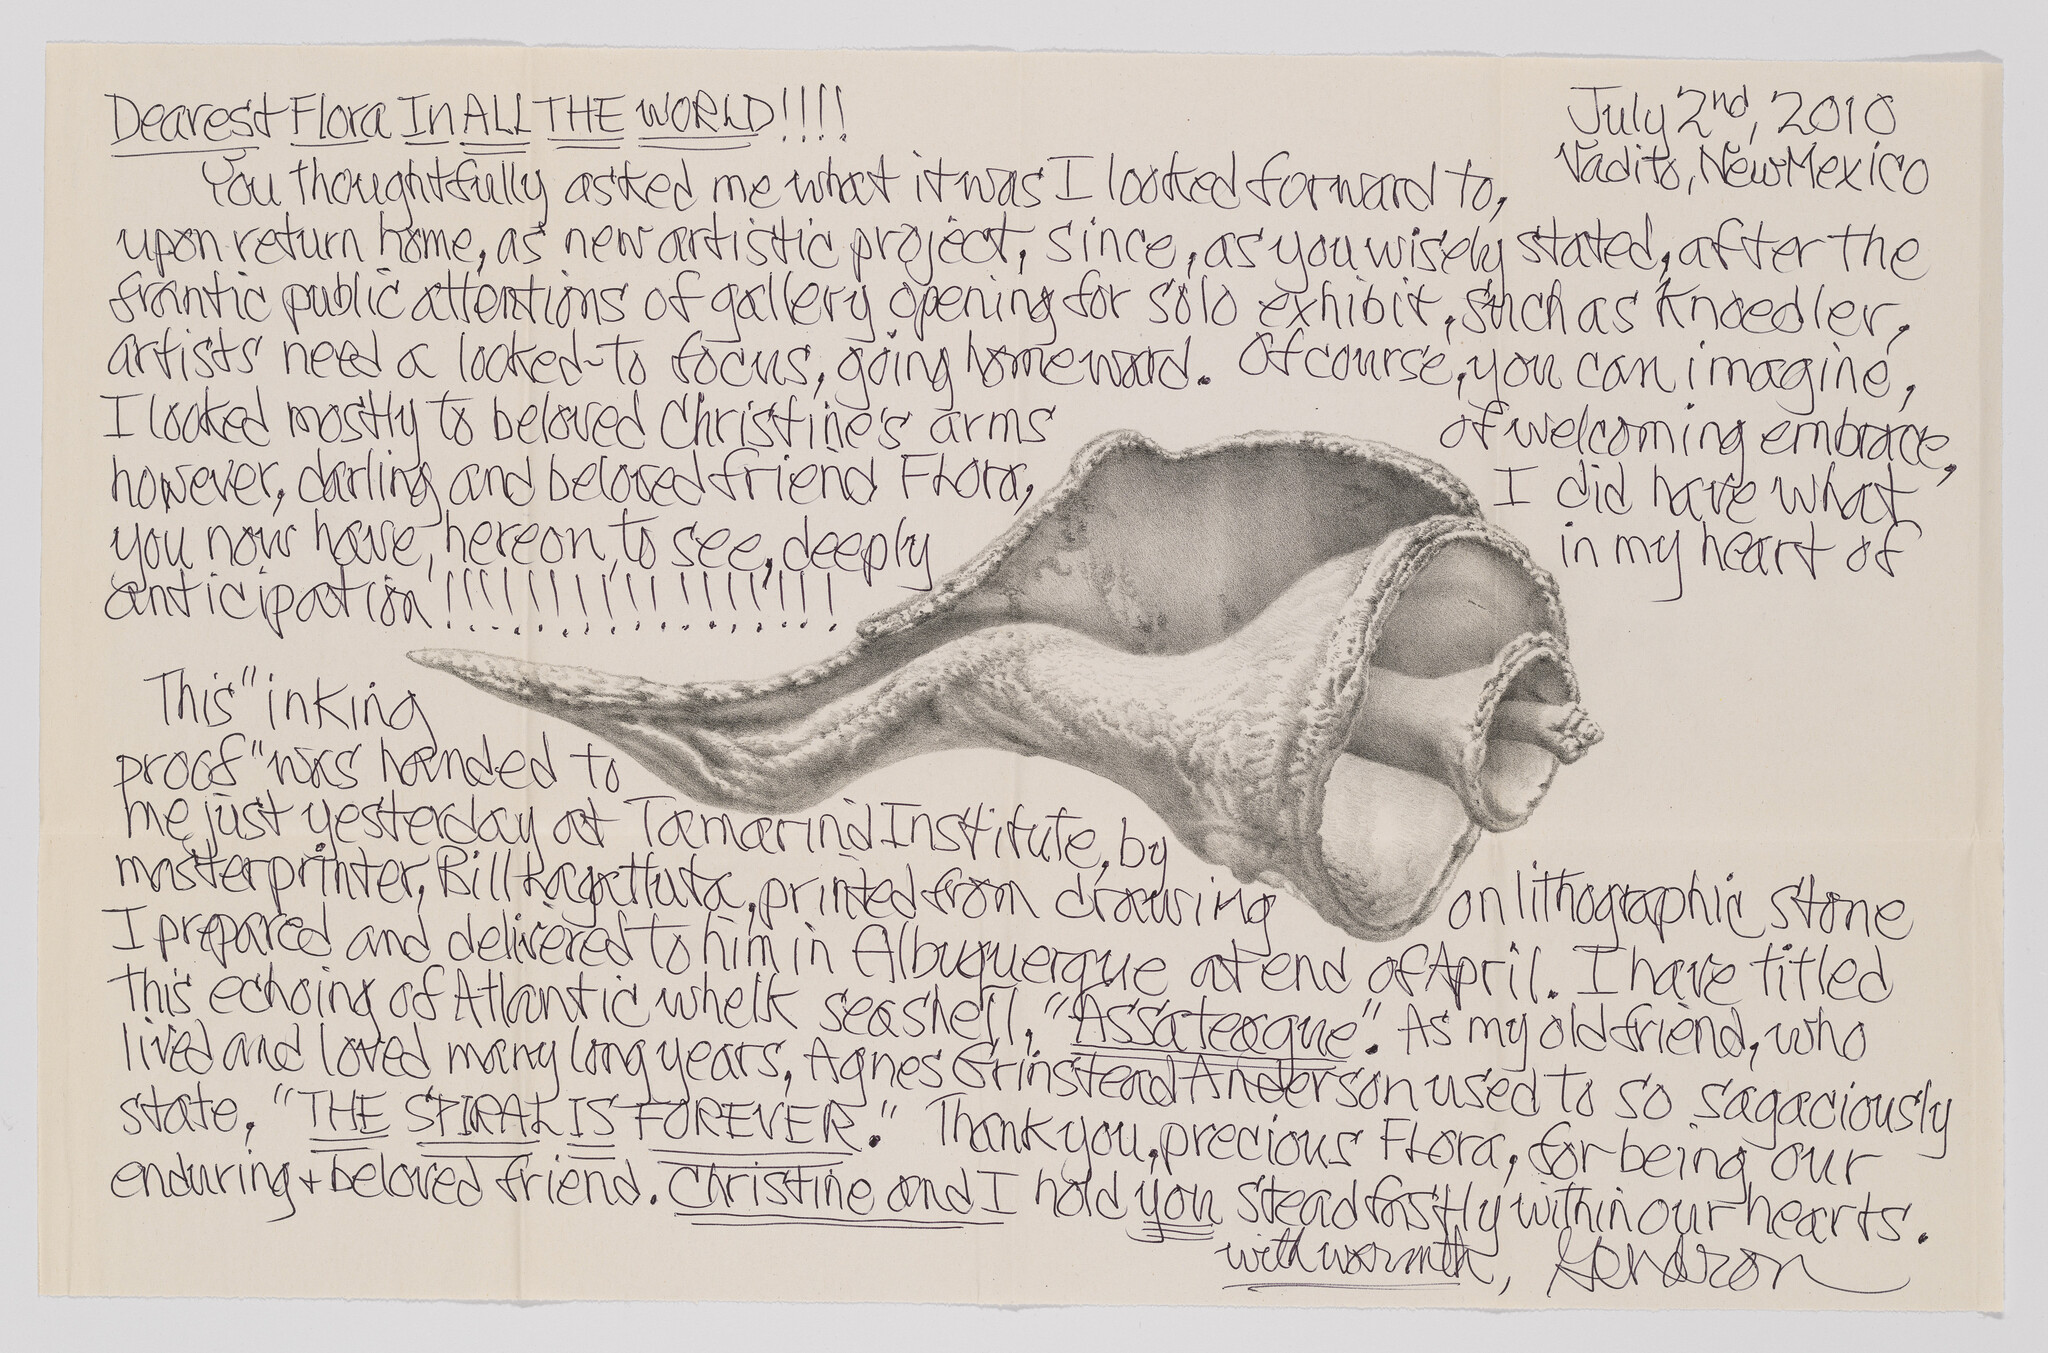 Dearest Flora In ALL THE WORLD!!!!
July 2nd, 2010
Vadito, New Mexico
You thoughtfully asked me what it was I looked forward to,
upon return home, as new artistic project, since, as you wisely stated, after the
frantic public attentions of gallery opening for solo exhibit, such as Knoedler,
artists need a looked-to focus, going homeward. Of course, you can imagine,
I looked mostly to beloved Christine's arms of welcoming embrace,
however, darling and beloved friend Flora, I did have what
you now have, hereon, to see, deeply in my heart of
anticipation!!!!!!!!!!!!!!!!!!
This "inking
proof" was handed to
me just yesterday at Tamarind Institute, by
master printer, Bill Lagattuta, printed from drawing on lithographic stone
I prepared and delivered to him in Albuquerque at end of April. I have titled
this echoing of Atlantic whelk seashell, "Assateague". As my old friend, who
lived and loved many long years, Agnes Grinstead Anderson used to so sagaciously
state, "THE SPIRAL IS FOREVER." Thank you, precious Flora, for being our
enduring + beloved friend. Christine and I hold you steadfastly within our hearts.
with warmth, Gendron